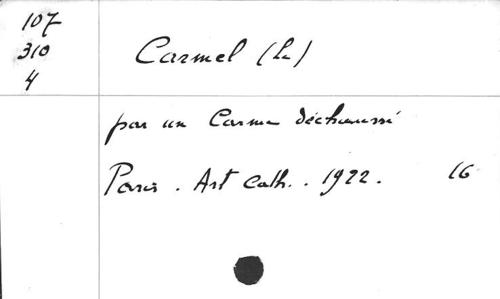 107
310
4
Carmel (Le)
par un Carme déchaussé
Paris . Art Cath. . 1922 . 16